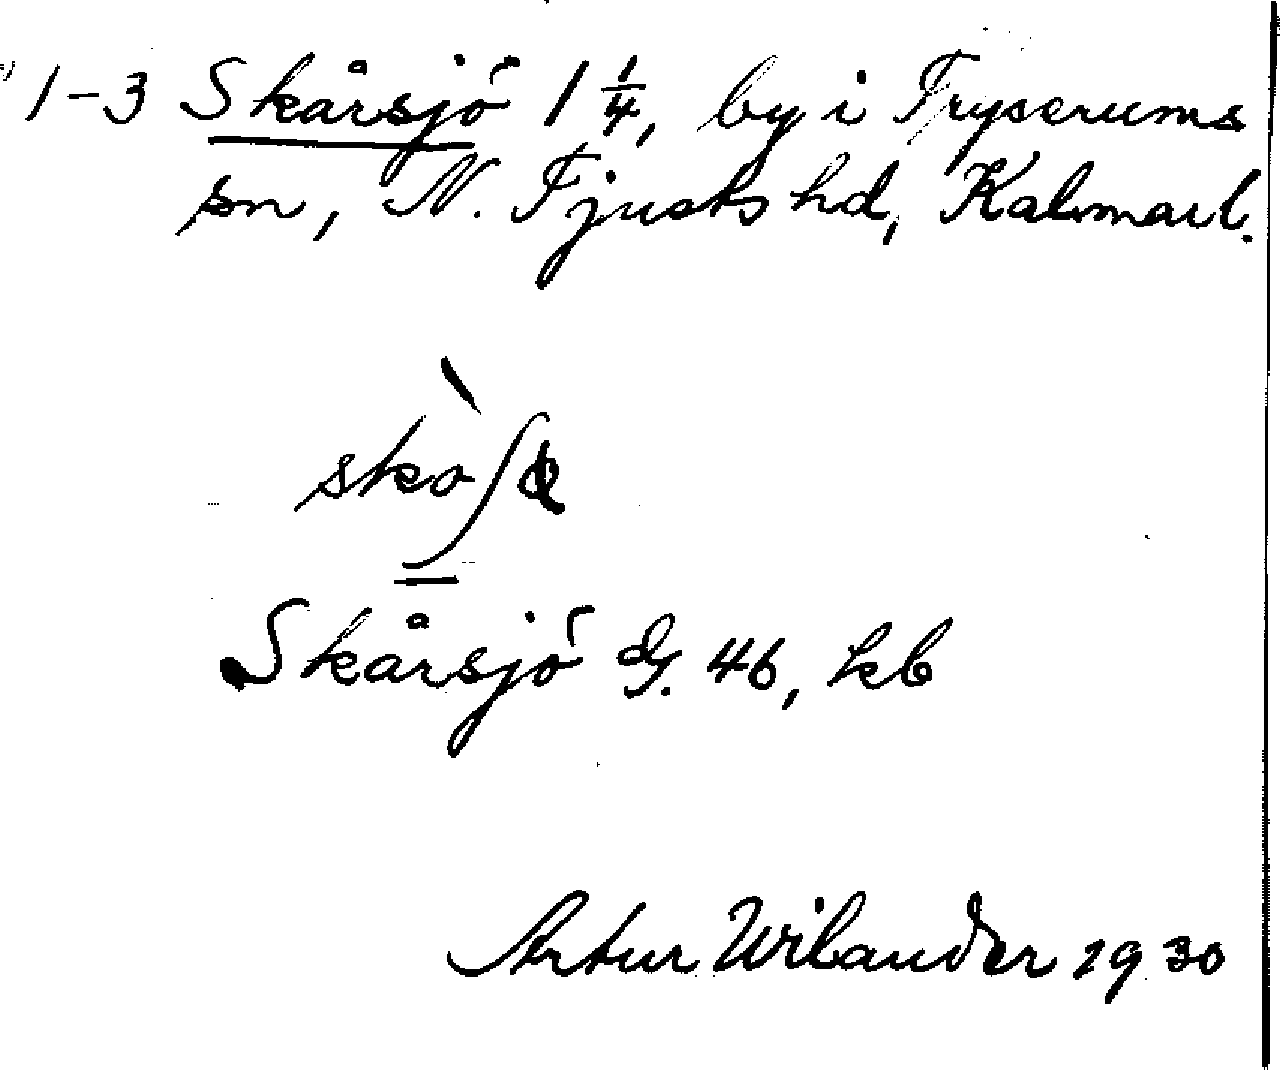 1-3 Skårsjö 1 1/4, by i Tryserums
sn, N. Tjusts hd, Kalmarl.
Skårsjö G. 46, kb
Artur Wilander 1930